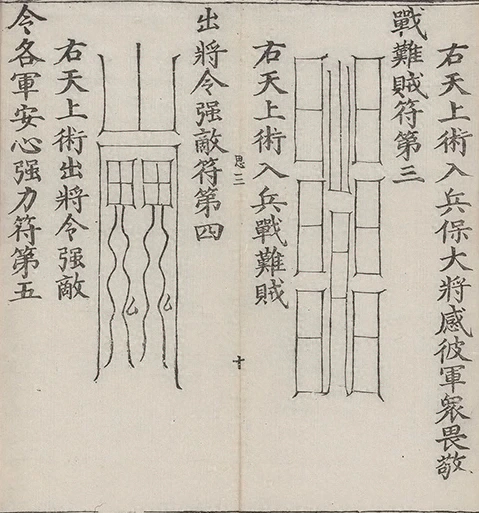 右天上術入兵保大將感彼軍眾畏敬
戰難賊符第三
右天上術入兵戰難賊
思三
十
出將令强敵符第四
右天上術出將令强敵
令各軍安心强力符第五